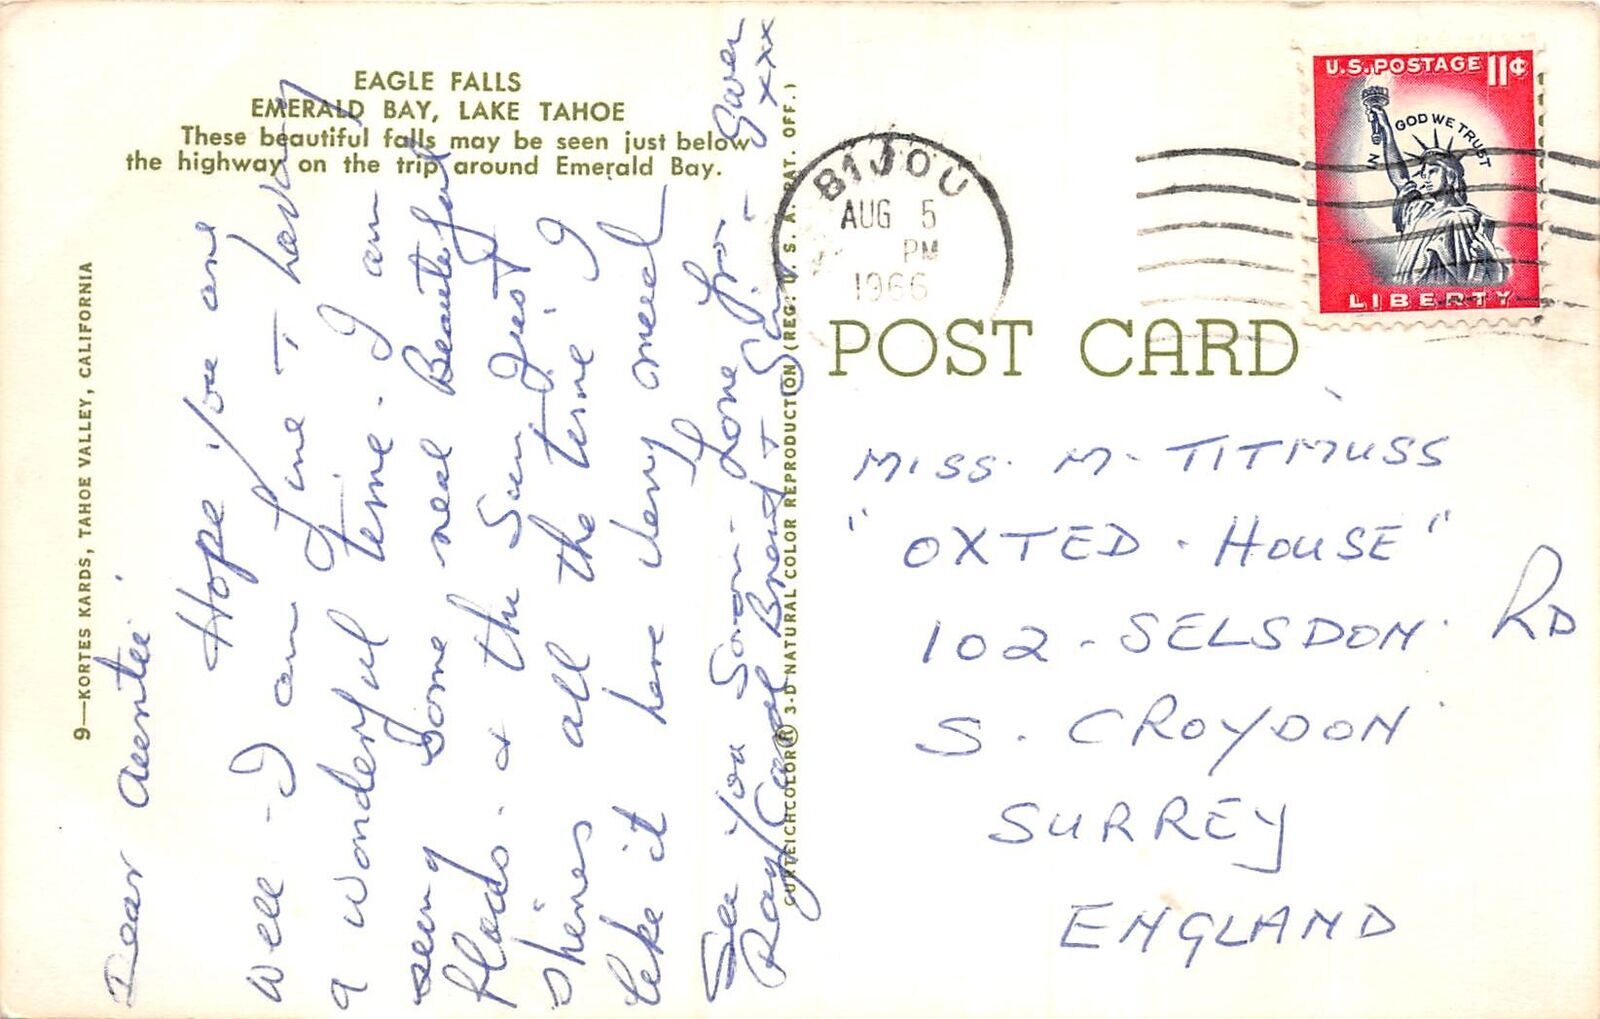 EAGLE FALLS
EMERALD BAY, LAKE TAHOE
These beautiful falls may be seen just below
the highway on the trip around Emerald Bay.
9—KORTES KARDS, TAHOE VALLEY, CALIFORNIA
Dear Auntie
Hope you are
well - I am fine + having
a wonderful time. I am
seeing some real Beautiful
places. & the Sun Just
shines all the time I
like it here very much
See You Soon. Love from
Ray Carol Brent +
Gwen
xxx
CURTEICHCOLOR® 3-D NATURAL COLOR REPRODUCTION (REG. U. S. A. PAT. OFF.)
POST CARD
BIJOU
AUG 5
PM
1966
U.S. POSTAGE 11¢
IN GOD WE TRUST
LIBERTY
MISS. M. TITMUSS
"OXTED. HOUSE"
102 - SELSDON RD
S. CROYDON
SURREY
ENGLAND